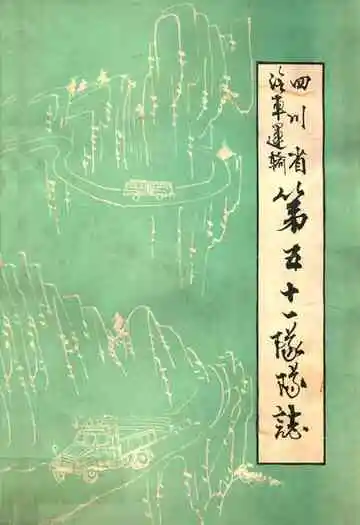 四川省
汽車運輸
第五十一隊隊誌